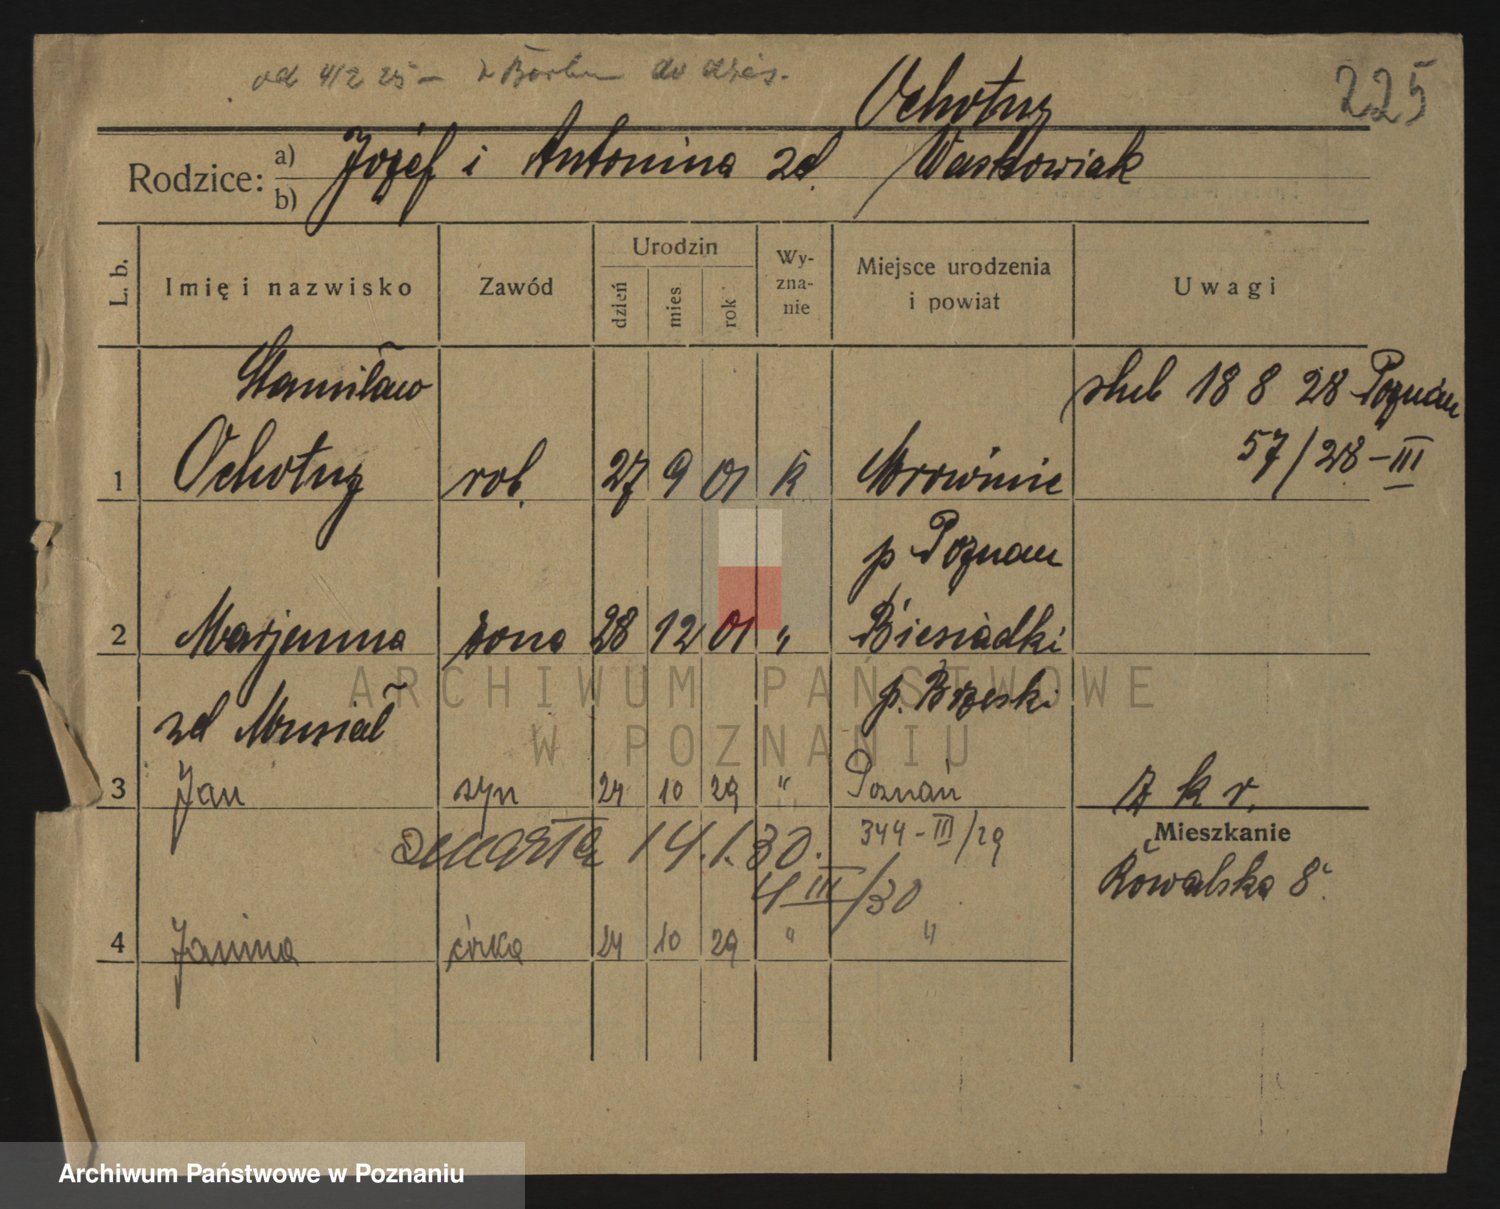 od 4/2 25 – z Borku do dzis.
225
Ochotny
Rodzice: a) b) Józef i Antonina zd. Waskowiak
L. b. Imię i nazwisko Zawód Urodzin dzień mies rok Wyznanie Miejsce urodzenia i powiat Uwagi
Stanisław
ślub 18 8 28 Poznań
57/28–III
1 Ochotny rob. 27 9 01 k Mrowinie
p Poznań
2 Marjanna żona 28 12 01 " Biesiadki
p. Brzeski
zd Musiał
3 Jan syn 24 10 29 " Poznań
344–III/29
zmarła 14.1.30.
4 III/30
k r.
Mieszkanie
Kowalska 8.
4 Janina córka 24 10 29 " "
ARCHIWUM PAŃSTWOWE
W POZNANIU
Archiwum Państwowe w Poznaniu